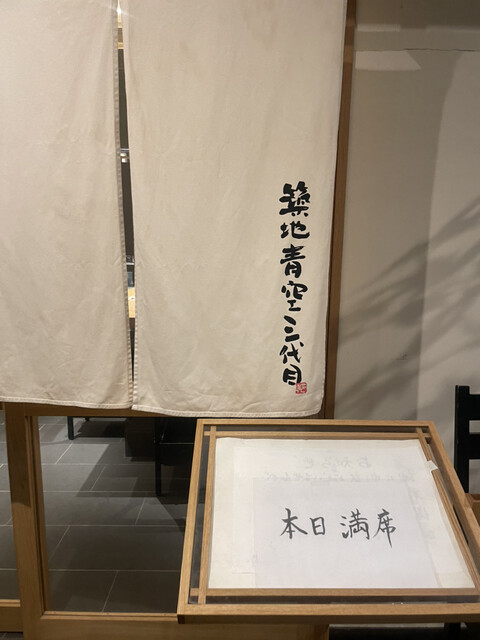 築地青空三代目
本日満席